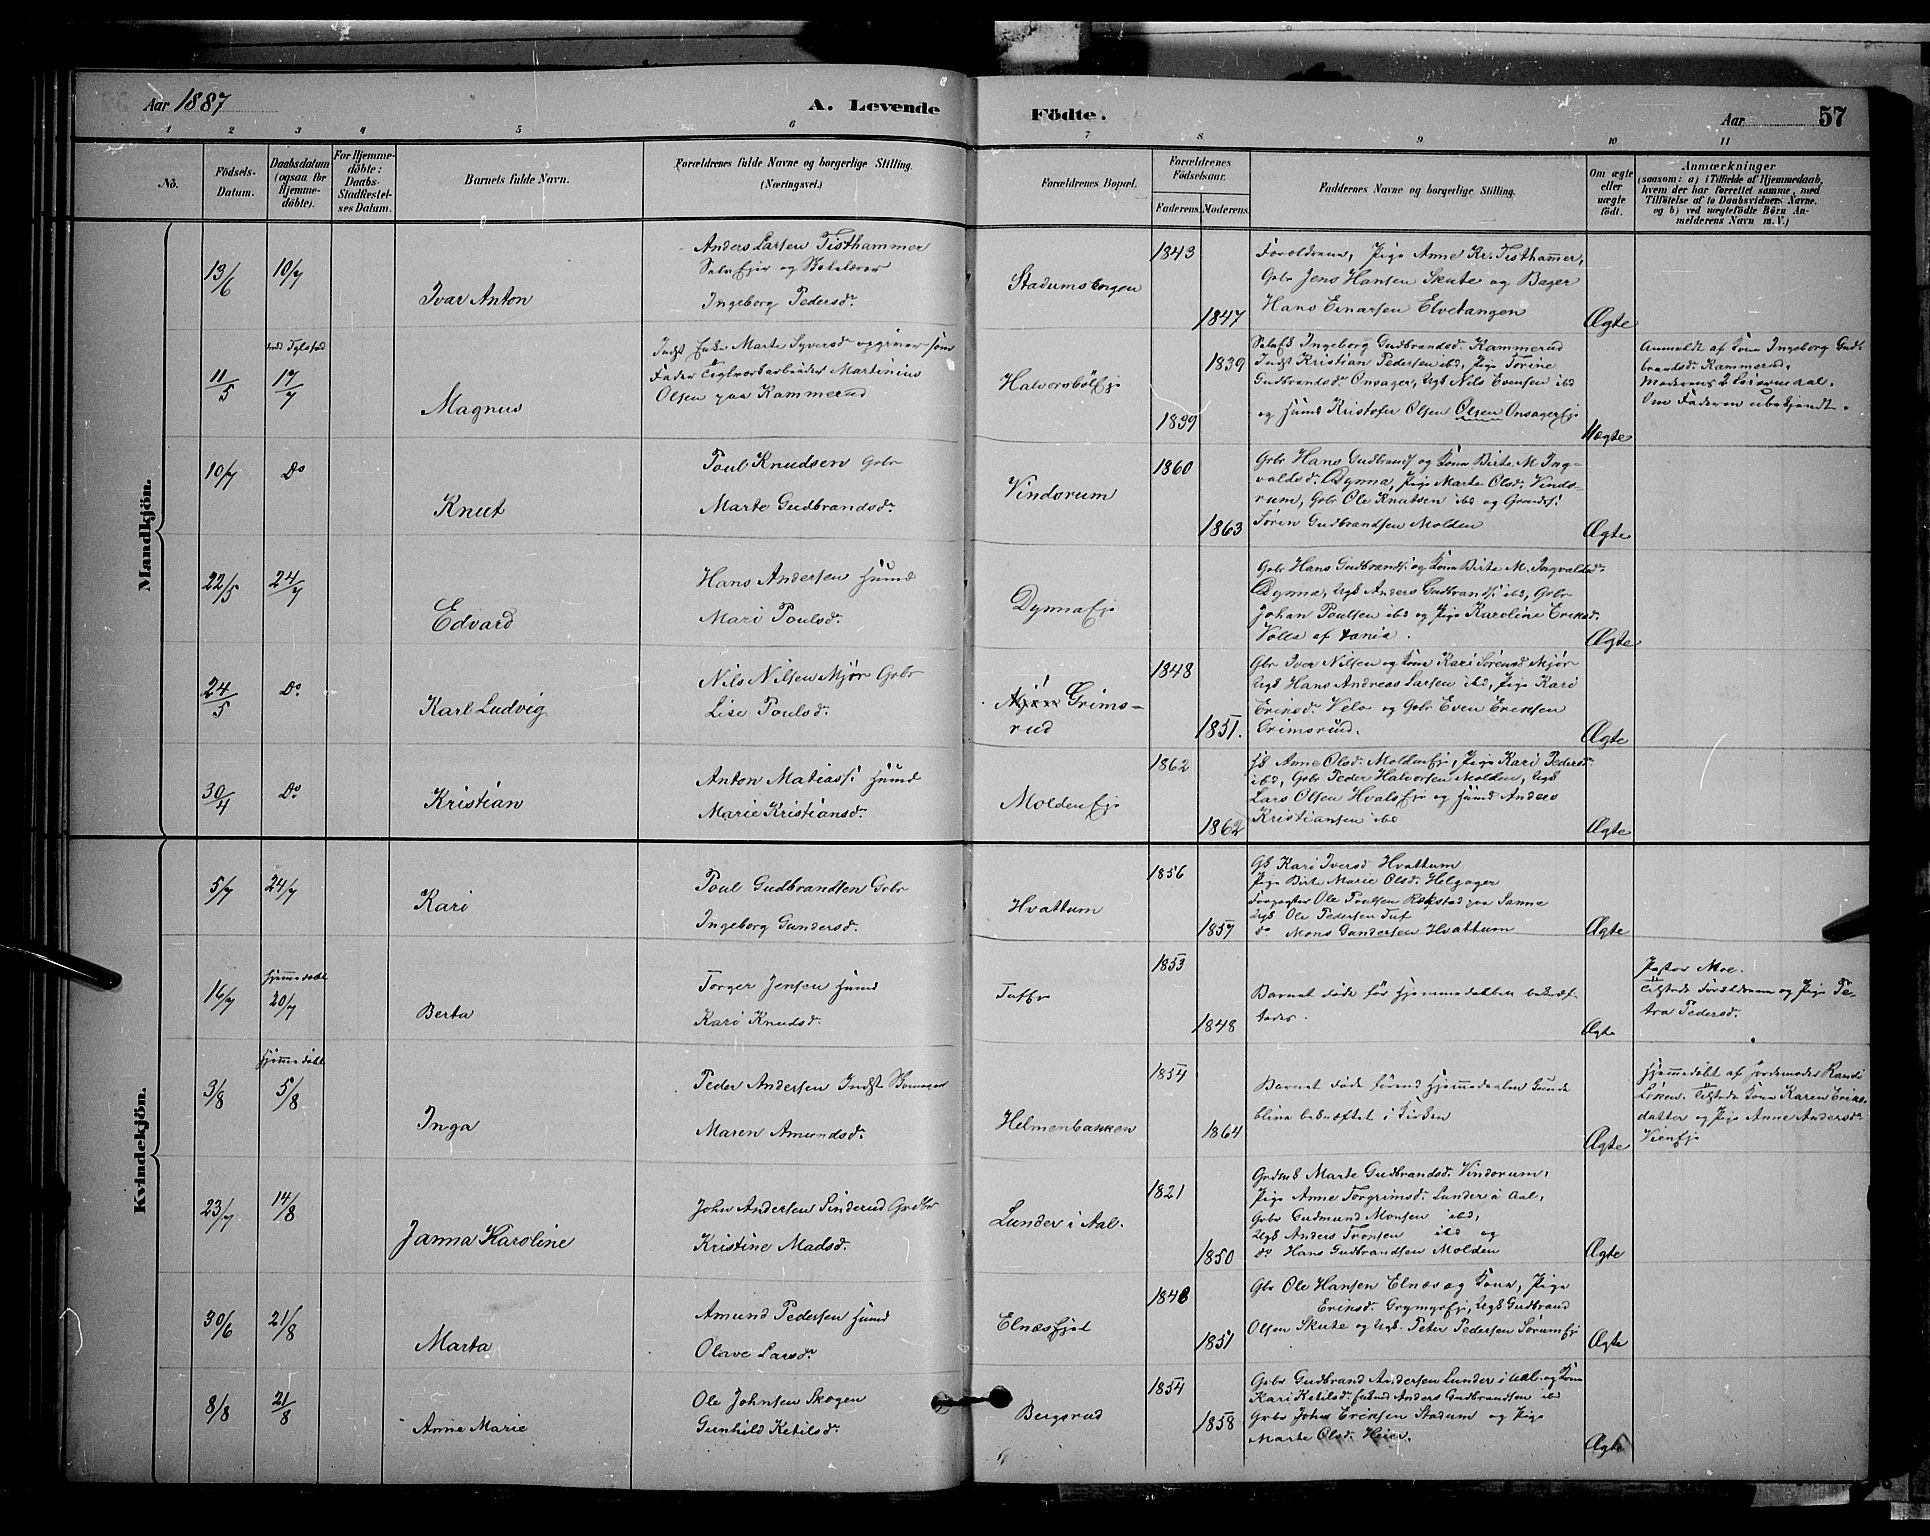 Aar 1887
A. Levende
Födte.
Aar
57
1 2 3 4 5 6 7 8 9 10 11
Nö.
Födsels-
Datum.
Daabsdatum
(ogsaa for
Hjemme-
döbte).
For Hjemme-
döbte:
Daabs-
Stadfæstel-
ses Datum.
Barnets fulde Navn.
Forældrenes fulde Navne og borgerlige Stilling.
(Næringsvei.)
Forældrenes Bopæl.
Forældrenes
Födselsaar.
Faderens.
Moderens.
Faddernes Navne og borgerlige Stilling.
Om ægte
eller
uægte
födt.
Anmærkninger
(saasom: a) i Tilfælde af Hjemmedaab,
hvem der har forrettet samme, med
Tilföielse af to Daabsvidners Navne.
og b) ved uægtefödte Börn An-
melderens Navn m. V.)
Mandkjön.
13/6
10/7
Ivar Anton
Anders Larsen Tisthammer
Selveier og
Ingeborg Pedersd.
Stadumsborgen
1843
1847
Forældrene, Pige Anne Kr. Tisthammer,
Gbr Jens Hansen Skute og Bager
Hans Einarsen Elvetangen
Ægte
11/5
17/7
Magnus
Indst Enke Marte Syversd opgiver som
Fader Teglværksarbeider Martinius
Olsen paa Kammerud
Halvorsböl Eje
1839
1839
Ingeborg Gudbrandsd. Kammerud
Indst Kristian Pedersen ibd, Pige Torine
Gudbrandsd. Onsager, Ugk Nils Evensen ibd
og Husmd Kristofer Olsen Olsen Onsager Eje
Uægte
Anmeldt af Kona Ingeborg Gud-
brandsd. Kammerud.
Moderens 2 Leiermaal.
Om Faderen ubekjendt.
10/7
Do
Knut
Poul Knudsen Grbr
Marte Gudbrandsd.
Vindorum
1860
1863
Grbr Hans Gudbrands. og Kona Birte M. Ing-
valdsd. Dynna, Pige Marte Olsd. Vindo-
rum, Gbr Ole Knutsen ibd og Grands.
Sören Gudbrandsen Molden
Ægte
22/5
24/7
Edvard
Hans Andersen Husmd
Mari Poulsd.
Dynna Eje
Gbr Hans Gudbrands. og Kona Birte M. Ingvaldsd.
Dynna, Ugk Anders Gudbrands. ibd, Gbr
Johan Poulsen ibd og Pige Karoline Eriksd.
Volla af
Ægte
24/5
Do
Karl Ludvig
Nils Nilsen Mjör Grbr
Lise Poulsd.
Grims-
rud
1848
1851.
Gbr Iver Nilsen og Kona Kari Sörensd Mjör
Ugk Hans Andreas Larsen ibd, Pige Kari
Eriksd. Velo og Gbr Even Eriksen
Grimsrud.
Ægte
30/4
Do
Kristian
Anton Matiass. Husmd
Marie Kristiansd.
Molden Eje
1862
1862
Anne Olsd. Molden Eje, Pige Kari Pedersd.
ibd, Gbr Peder Halvorsen Molden, Ugk
Lars Olsen Hvals Eje og Husmd Anders
Kristiansen ibd
Ægte
Kvindekjön.
5/7
24/7
Kari
Poul Gudbrandsen Grbr
Ingeborg Gundersd.
Hvattum
1856
1857
Gk Kari Iversd Hvattum
Pige Birte Marie Olsd. Helgager
Ole Poulsen Rækstad paa Sanne
Ugk Ole Pedersen Tuf
do Mons Gundersen Hvattum
Ægte
16/7
Hjemmedöbt
20/7
Berta
Torger Jensen Husmd
Kari Knudsd.
1853
1848
Barnet döde för Hjemmedaaben bekræf-
tedes.
Ægte
Pastor Moe.
Tilstede Forældrene og Pige Pe-
tra Pedersd.
3/8
Hjemmedöbt
5/8
Inga
Peder Andersen Indst
Maren Amundsd.
Helmenbakken
1854
1864
Barnet döde förend Hjemmedaaben kunde
blive bekræftet i Kirken
Ægte
Hjemmedöbt af Jordemoder Randi
Löken. Tilstede Kona Karen Eriks-
datter og Pige Anne Andersd.
Vien Eje
23/7
14/8
Janna Karoline
John Andersen Sinderud
Kristine Madsd.
Lunder i Aal.
1821
1850
Marte Gudbrandsd. Vindorum,
Pige Anne Torgrimsd. Lunder i Aal,
Gbr Gudmund Monsen ibd,
Ugk Anders Tronsen ibd og
do Hans Gudbrandsen Molden
Ægte
30/6
21/8
Marta
Amund Pedersen Husmd
Olave Larsd.
1851
Gbr Ole Hansen Elnæs og Kona, Pige
Eriksd. Grymyr Eje, Ugk Gudbrand
Olsen Skute og Ugk. Peter Pedersen Sörum Eje
Ægte
8/8
21/8
Anne Marie
Ole Johnsen Skogen
Gunhild Ketilsd.
Bergsrud
1854
1858
Grbr Gudbrand Andersen Lunder i Aal. og Kona
Kari Ketilsd. Anders Gudbrandsen ibd
Grbr John Eriksen Stadum og Pige
Marte Olsd. Heier.
Ægte